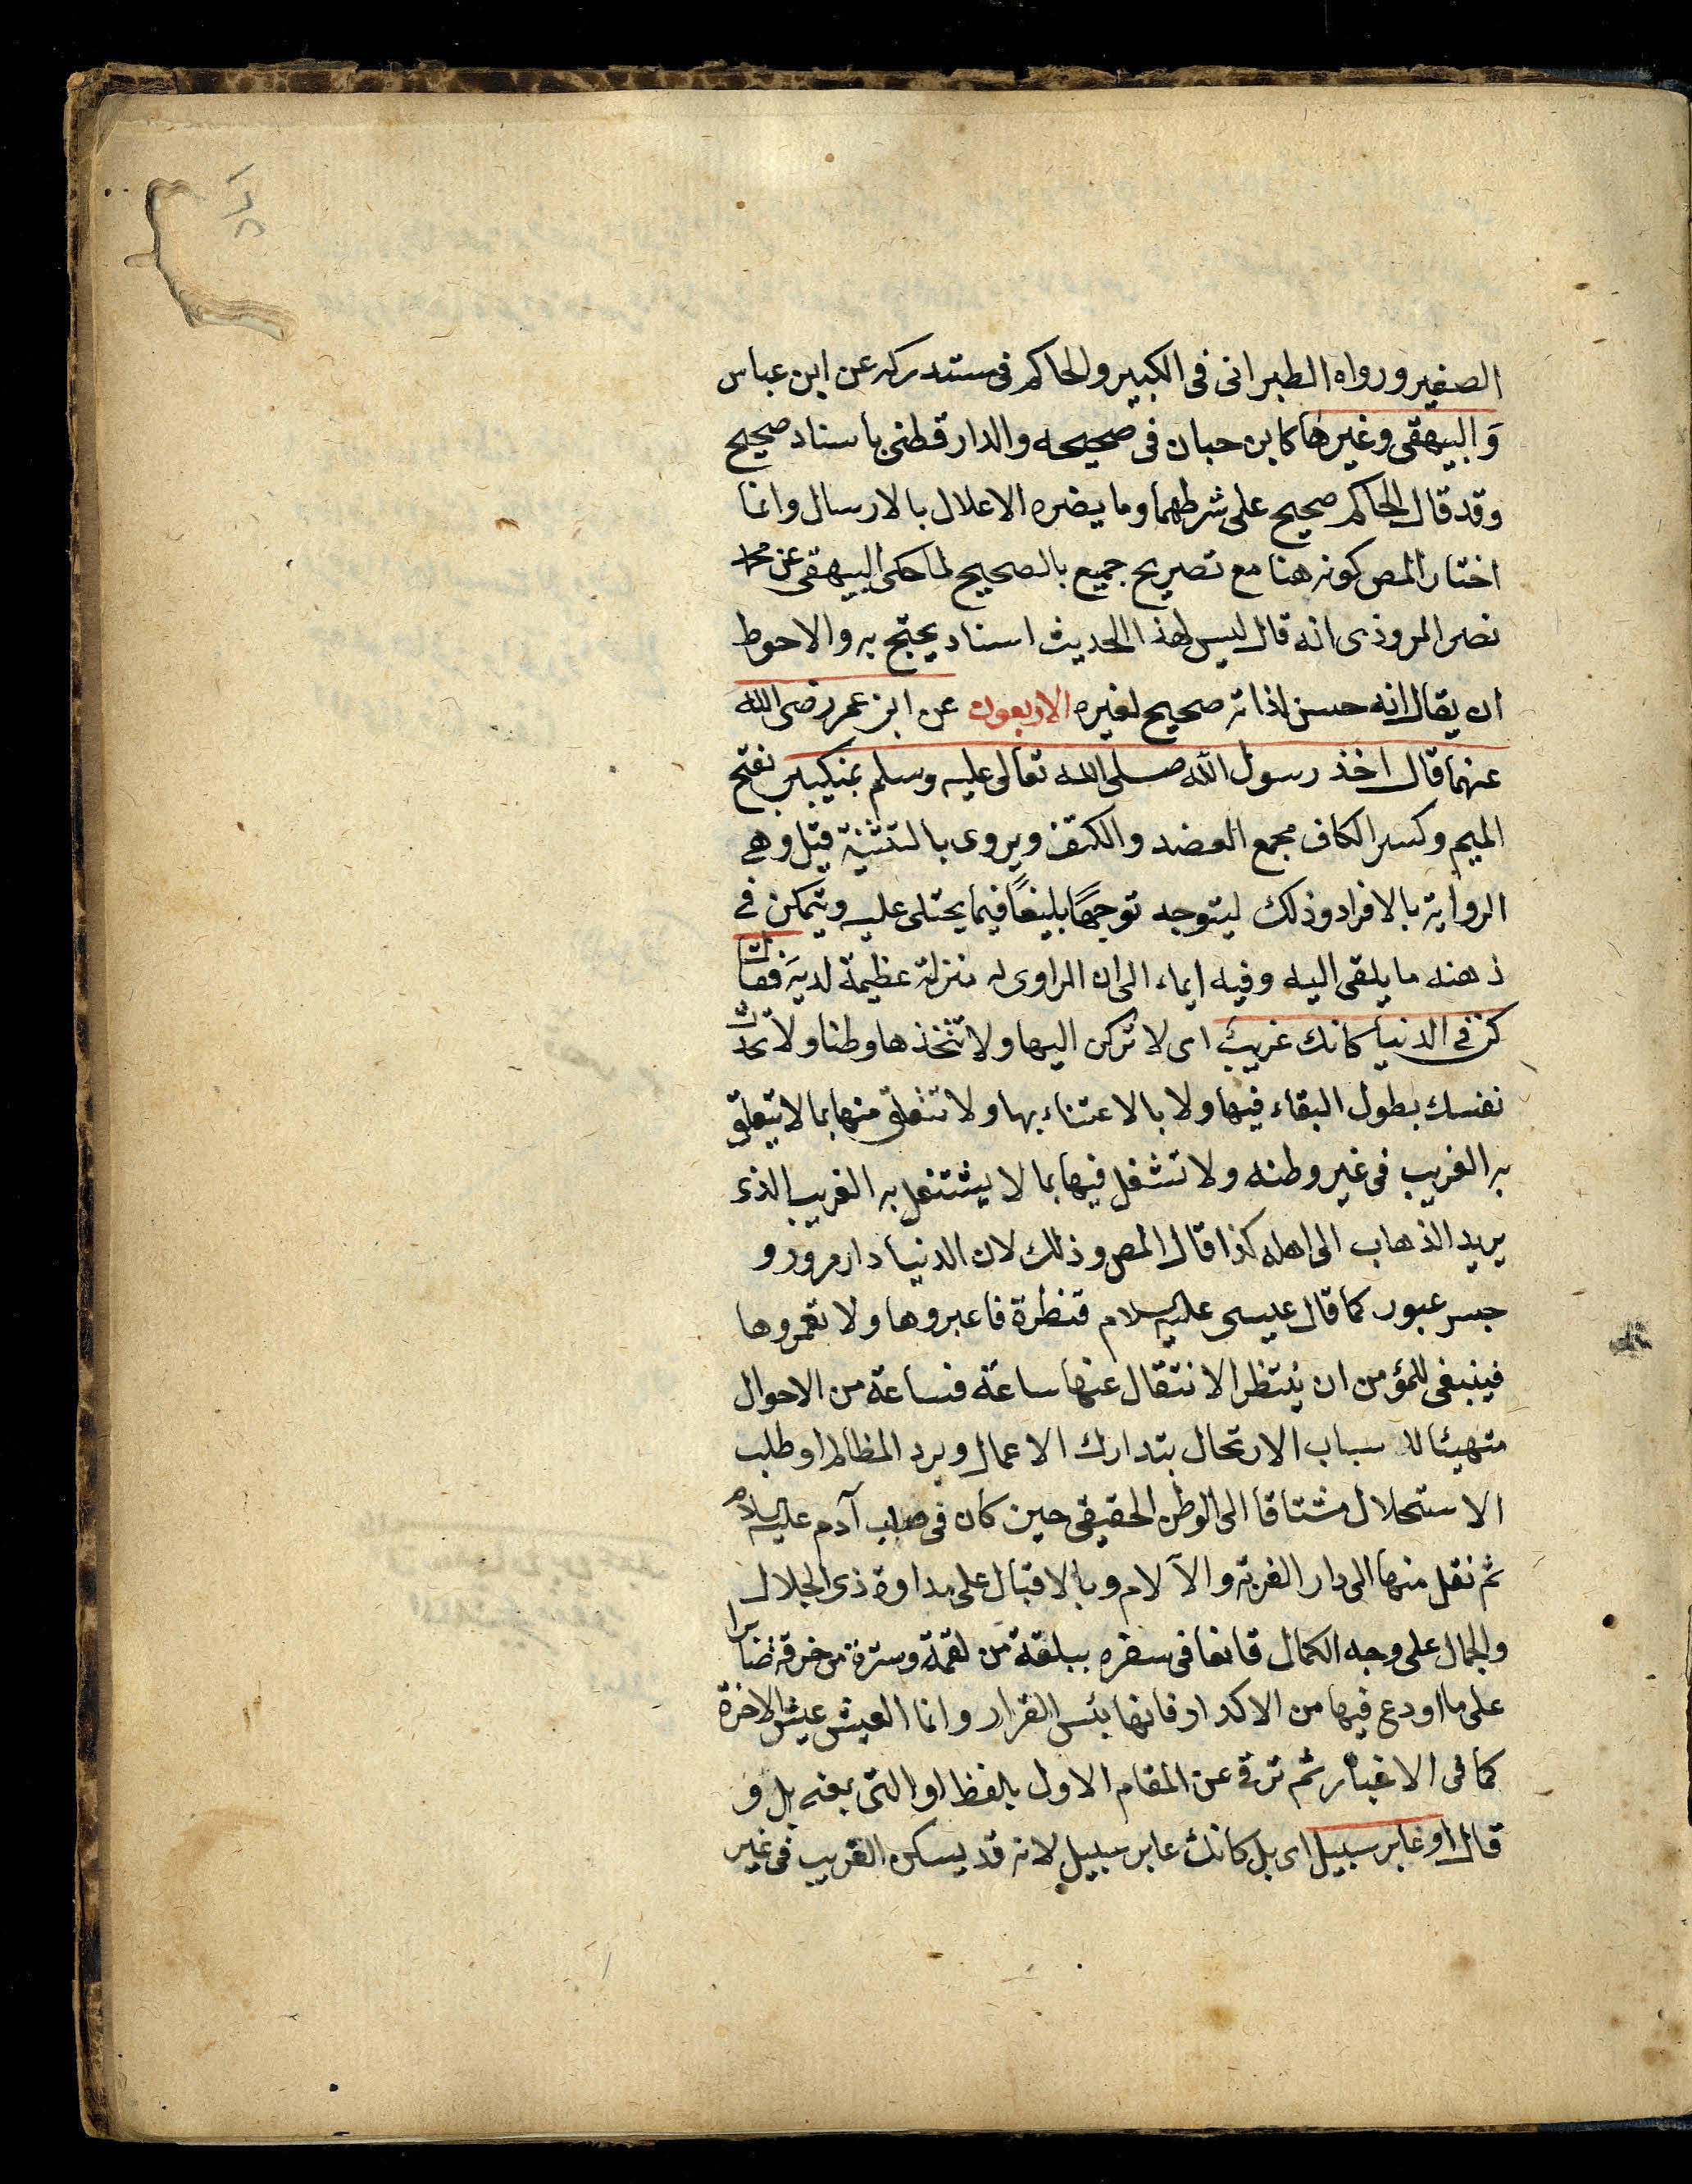 الصغير ورواه الطبرانى فى الكبير والحاكم فى مستدركه عن ابن عباس
وَالبيهقى وغيرها كابن حبان فى صحيحه والدارقطنى باسناد صحيح
وقد قال الحاكم صحيح على شرطهما وما يضره الاعلال بالارسال وانما
اختار المص كونه هنا مع تصريح جميع بالصحيح لما حكى البيهقى عن محمد
نصر المروذى انه قال ليس لهذا الحديث اسناد يحتج به والاحوط
ان يقال انه حسن لذاته صحيح لغيره الاربعون عن ابن عمر رضى الله
عنهما قال اخذ رسول الله صلى الله تعالى عليه وسلم بمنكبى بفتح
الميم وكسر الكاف مجمع العضد والكتف ويروى بالتثنية قيل وهى
الرواية بالافراد وذلك ليتوجه توجهًا بليغًا فيما يحتلى عليه ويتمكن فى
ذهنه ما يلقى اليه وفيه ايماء الى ان الراوى له منزلة عظيمة لديه فقال
كن فى الدنيا كانك غريب اى لا تركن اليها ولا تتخذها وطنا ولا تحدث
نفسك بطول البقاء فيها ولا بالاعتناء بها ولا تتعلق منها بما لا يتعلق
به الغريب فى غير وطنه ولا تشغل فيها بما لا يشتغل به الغريب الذى
يريد الذهاب الى اهله كذا قال المص وذلك لان الدنيا دار مرور و
جسر عبور كما قال عيسى عليه السلام قنطرة فاعبروها ولا تعمروها
فينبغى للمؤمن ان ينتظر الانتقال عنها ساعة فساعة من الاحوال
متهيئا للاسباب الارتحال بتدارك الاعمال وبرد المظالم او طلب
الاستحلال مشتاقا الى الوطن الحقيقى حين كان فى صلب آدم عليه السلام
ثم نقل منها الى دار الغربة والآلام وبالاقبال على مداوة ذى الجلال
والجمال على وجه الكمال قانعا فى سفره ببلغة من لقمة وسترة من خرقة
على ما اودع فيها من الاكدار فانها بئس القرار وانما العيش عيش الاخرة
كما فى الاخبار ثم ترقى عن المقام الاول بلفظ او التى بمعنى بل و
قال او عابر سبيل اى بل كانك عابر سبيل لانه قد يسكن الغريب فى غير